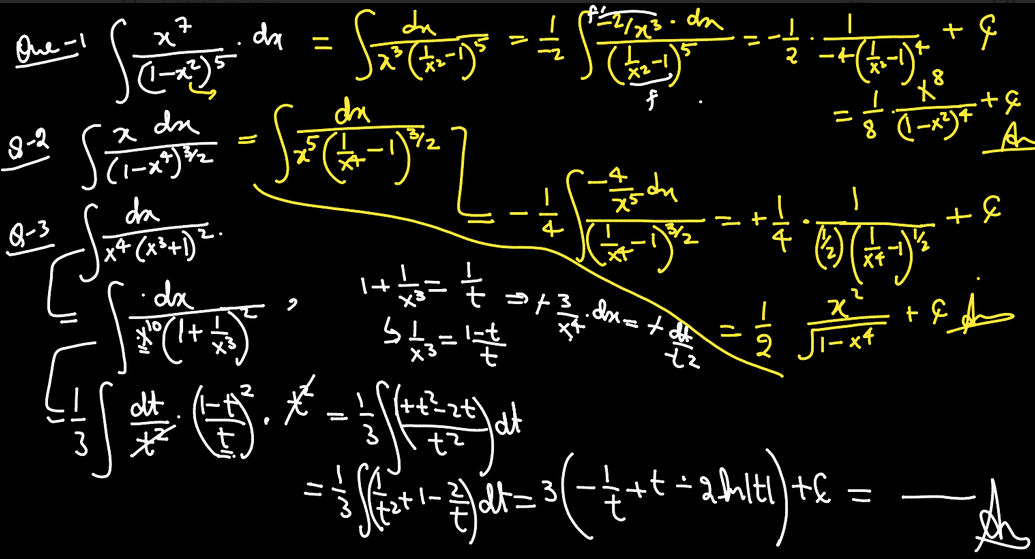 Que-1 ∫ x^7/(1-x^2)^5 · dx = ∫ dx/(x^3(1/x^2 -1)^5) = 1/-2 ∫ (-2/x^3 · dx)/(1/x^2 -1)^5 = -1/2 · 1/(-4(1/x^2 -1)^4) + C
f'
f
= 1/8 · x^8/(1-x^2)^4 + C
An
Q-2 ∫ x dx/(1-x^4)^{3/2} = ∫ dx/(x^5(1/x^4 -1)^{3/2})
= -1/4 ∫ (-4/x^5 dx)/(1/x^4 -1)^{3/2} = +1/4 · 1/((1/2)(1/x^4 -1)^{1/2}) + C
= 1/2 x^2/√(1-x^4) + C An
Q-3 ∫ dx/(x^4(x^3+1)^2) ·
= ∫ dx/(x^10(1+1/x^3)^2) , 1+1/x^3 = 1/t ⇒ +3/x^4 · dx = + dt/t^2
↳ 1/x^3 = (1-t)/t
= 1/3 ∫ dt/t^2 · ((1-t)/t)^2 · t^2 = 1/3 ∫ ((1+t^2-2t)/t^2) dt
= 1/3 ∫ (1/t^2 + 1 - 2/t) dt = 3(-1/t + t - 2ln|t|) + C = — An